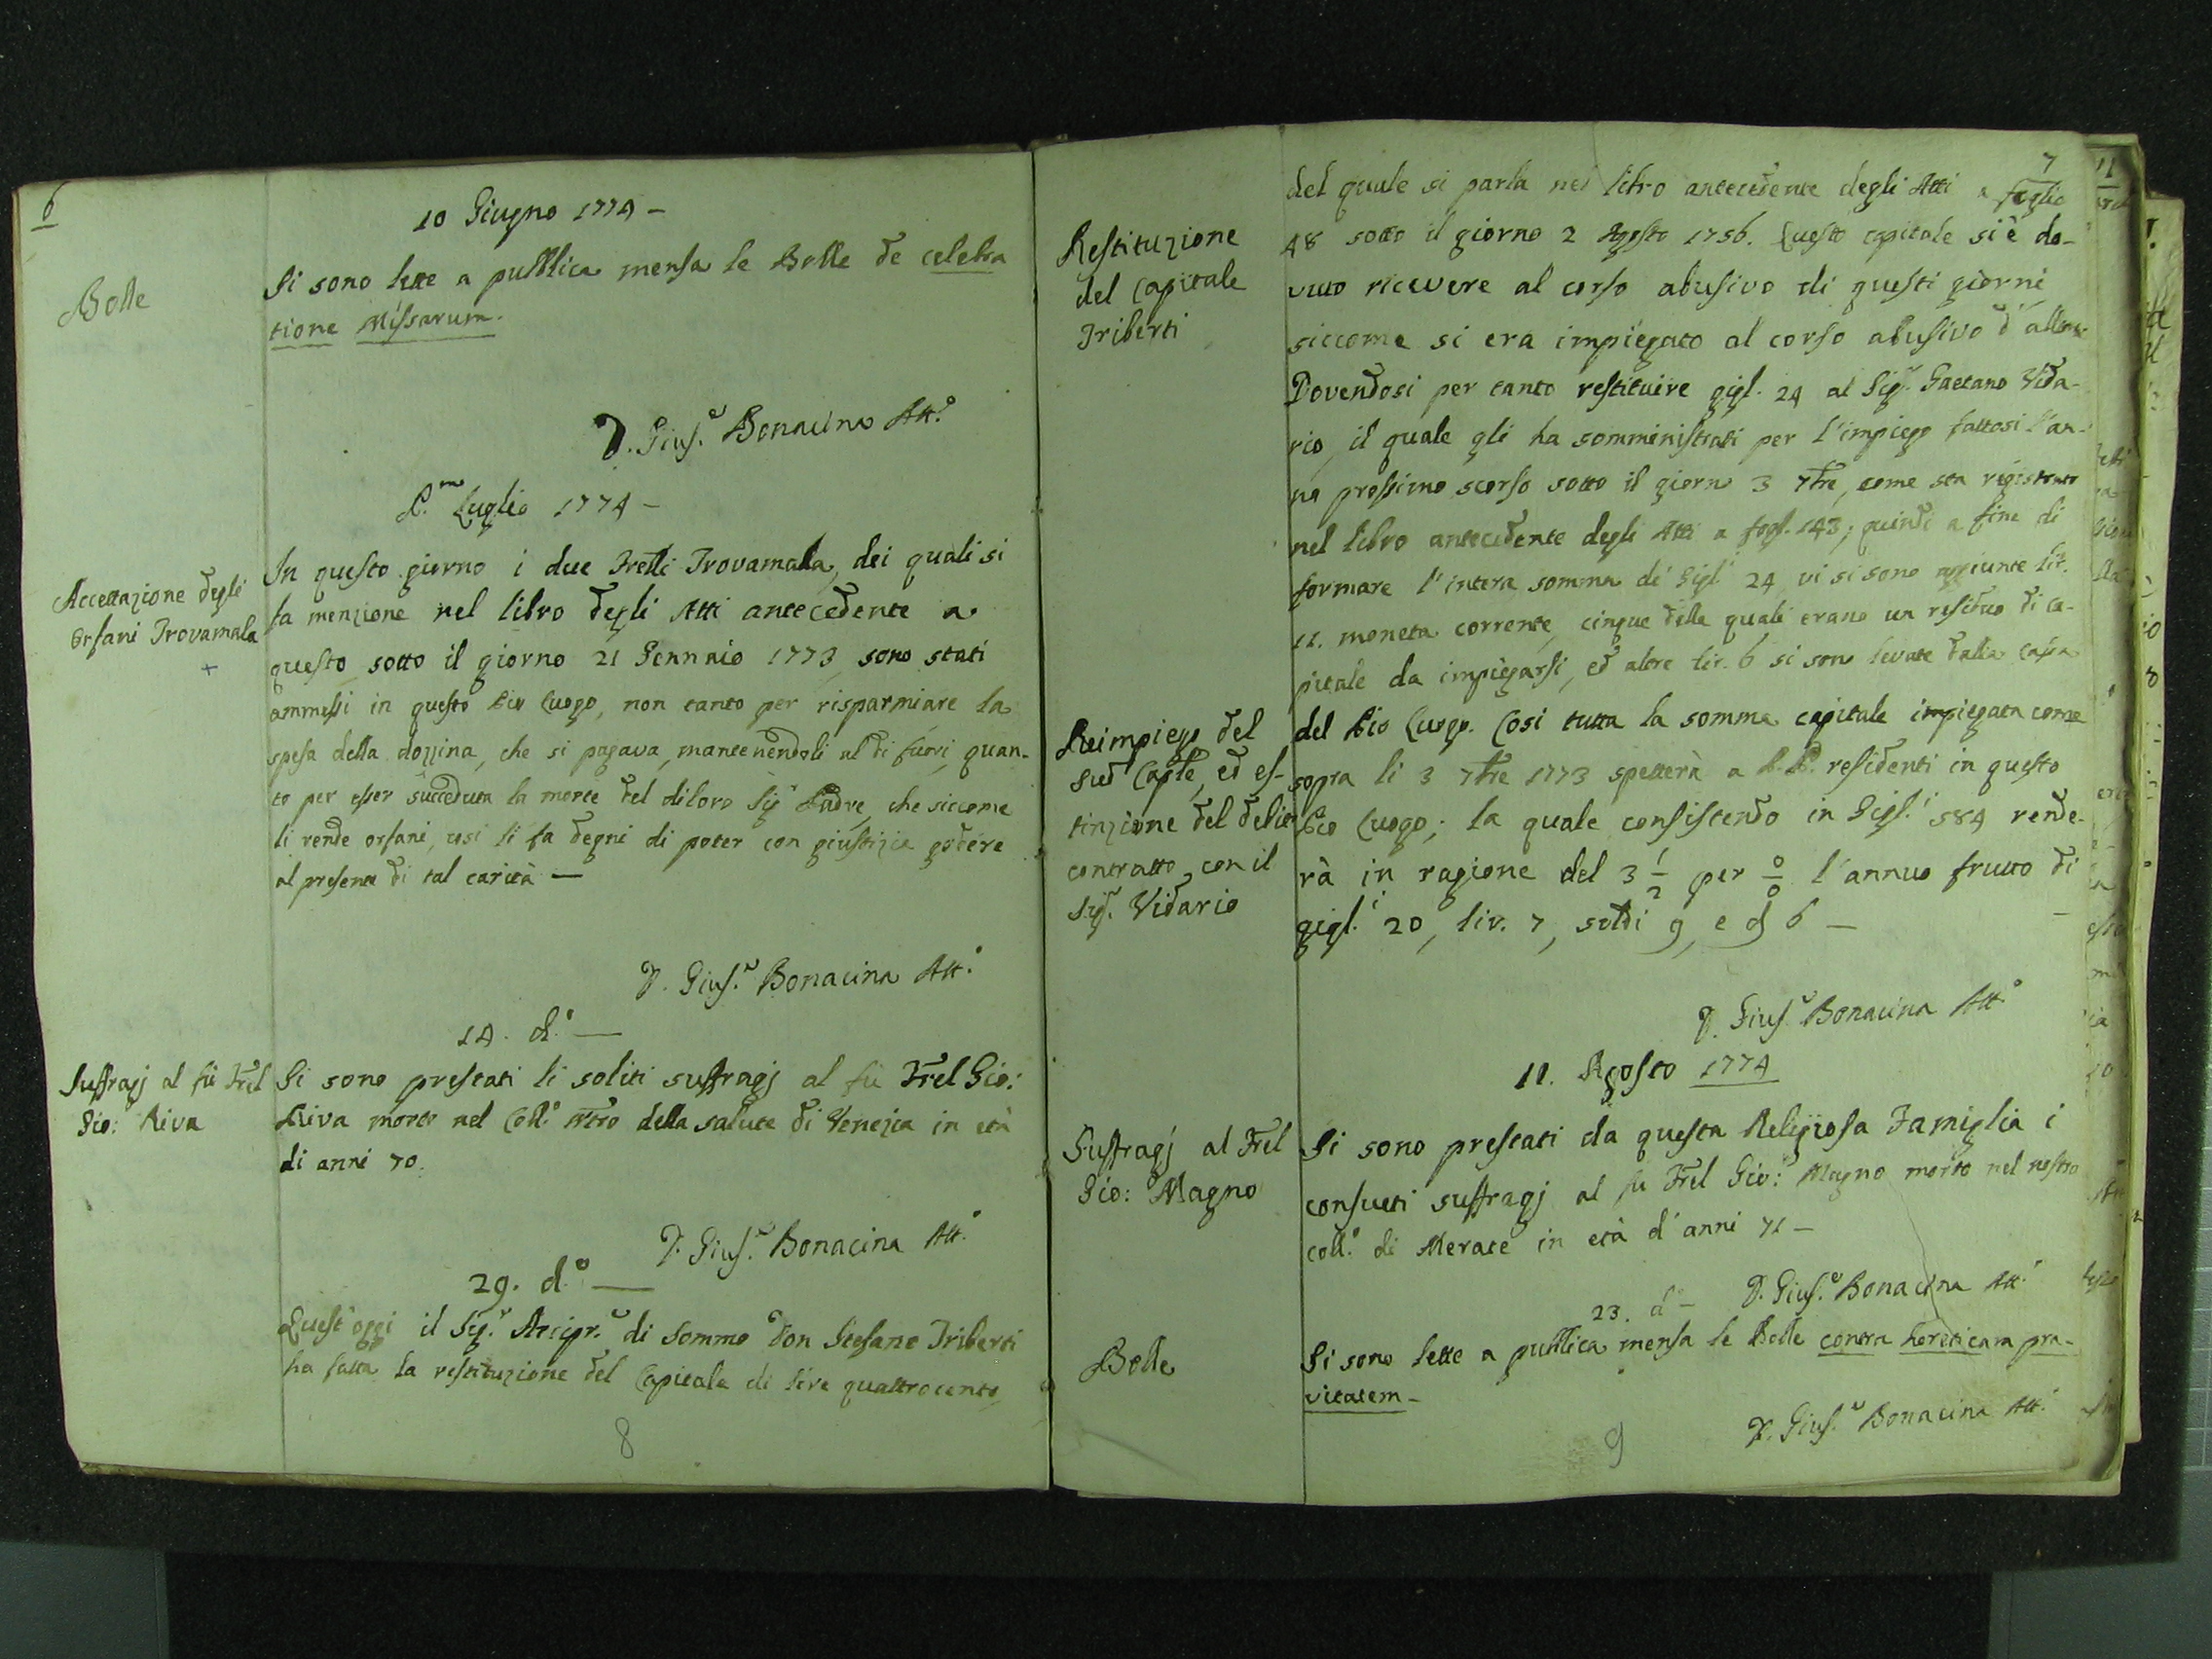 6
10 Giugno 1774 –
Bolle
Si sono lette a publica mensa le Bolle de celebra
tione Missarum.
D. Gius.e Bonacina Att.o
P.mo Luglio 1774 –
Accettazione degli
Orfani Trovamala
+
In questo giorno i due Frelli Trovamala, dei quali si
fa menzione nel libro degli Atti antecedente a
questo sotto il giorno 21 Gennaio 1773, sono stati
ammessi in questo Pio Luogo, non tanto per risparmiare la
spesa della dozzina, che si pagava, mantenendoli al di fuori, quan-
to per esser succeduta la morte del di loro Sig.r Padre, che siccome
li rende orfani, così li fa degni di poter con giustizia godere
al presente di tal carità —
D. Gius.e Bonacina Att.o
14. d.o —
Suffragj al fù Frel
Gio: Riva
Si sono prestati li soliti suffragj al fù Frel Gio:
Riva morto nel Coll.o nro della salute di Venezia in età
di anni 70.
D. Gius.e Bonacina Att.o
29. d.o —
Quest'oggi il Sig.r Arcipr.e di Sommo Don Stefano Triberti
ha fatta la restituzione del Capitale di lire quattrocento,
8
7
Restituzione
del Capitale
Triberti
del quale si parla nel libro antecedente degli Atti a foglio
48 sotto il giorno 2 Agosto 1756. Questo capitale si è do-
vuto ricevere al corso abusivo di questi giorni
siccome si era impiegato al corso abusivo d'allora.
Dovendosi per tanto restituire gigl. 24 al Sig.r Gaetano Vida-
rio, il quale gli ha somministrati per l'impiego fattosi l'an-
no prossimo scorso sotto il giorno 3 7bre, come sta registrato
nel libro antecedente degli Atti a fogl. 143; quindi a fine di
formare l'intera somma de' Gigl.i 24 vi si sono aggiunte lir.
11. moneta corrente, cinque delle quali erano un residuo di ca-
pitale da impiegarsi, ed altre lir. 6 si sono levate dalla cassa
Reimpiego del
sud Capte, ed es-
tinzione del debito
contratto con il
Sig.r Vidario
del Pio Luogo. Così tutta la somma capitale impiegata come
sopra li 3 7bre 1773 spetterà a P.P. residenti in questo
Pio Luogo; la quale consistendo in Gigl.i 584 rende-
rà in ragione del 3 1/2 per 0/0 l'annuo frutto di
gigl.i 20, liv. 7, soldi 9, e d 6 —
D. Gius.e Bonacina Att.o
11. Agosto 1774
Suffragj al Frel
Gio: Magno
Si sono prestati da questa Religiosa Famiglia i
consueti suffragj al fu Frel Gio: Magno morto nel nostro
coll.o di Merate in età d'anni 71 –
D. Gius.e Bonacina Att.o
23. d.o –
Bolle
Si sono lette a publica mensa le Bolle contra hereticam pra-
vitatem –
D. Gius.e Bonacina Att.o
9